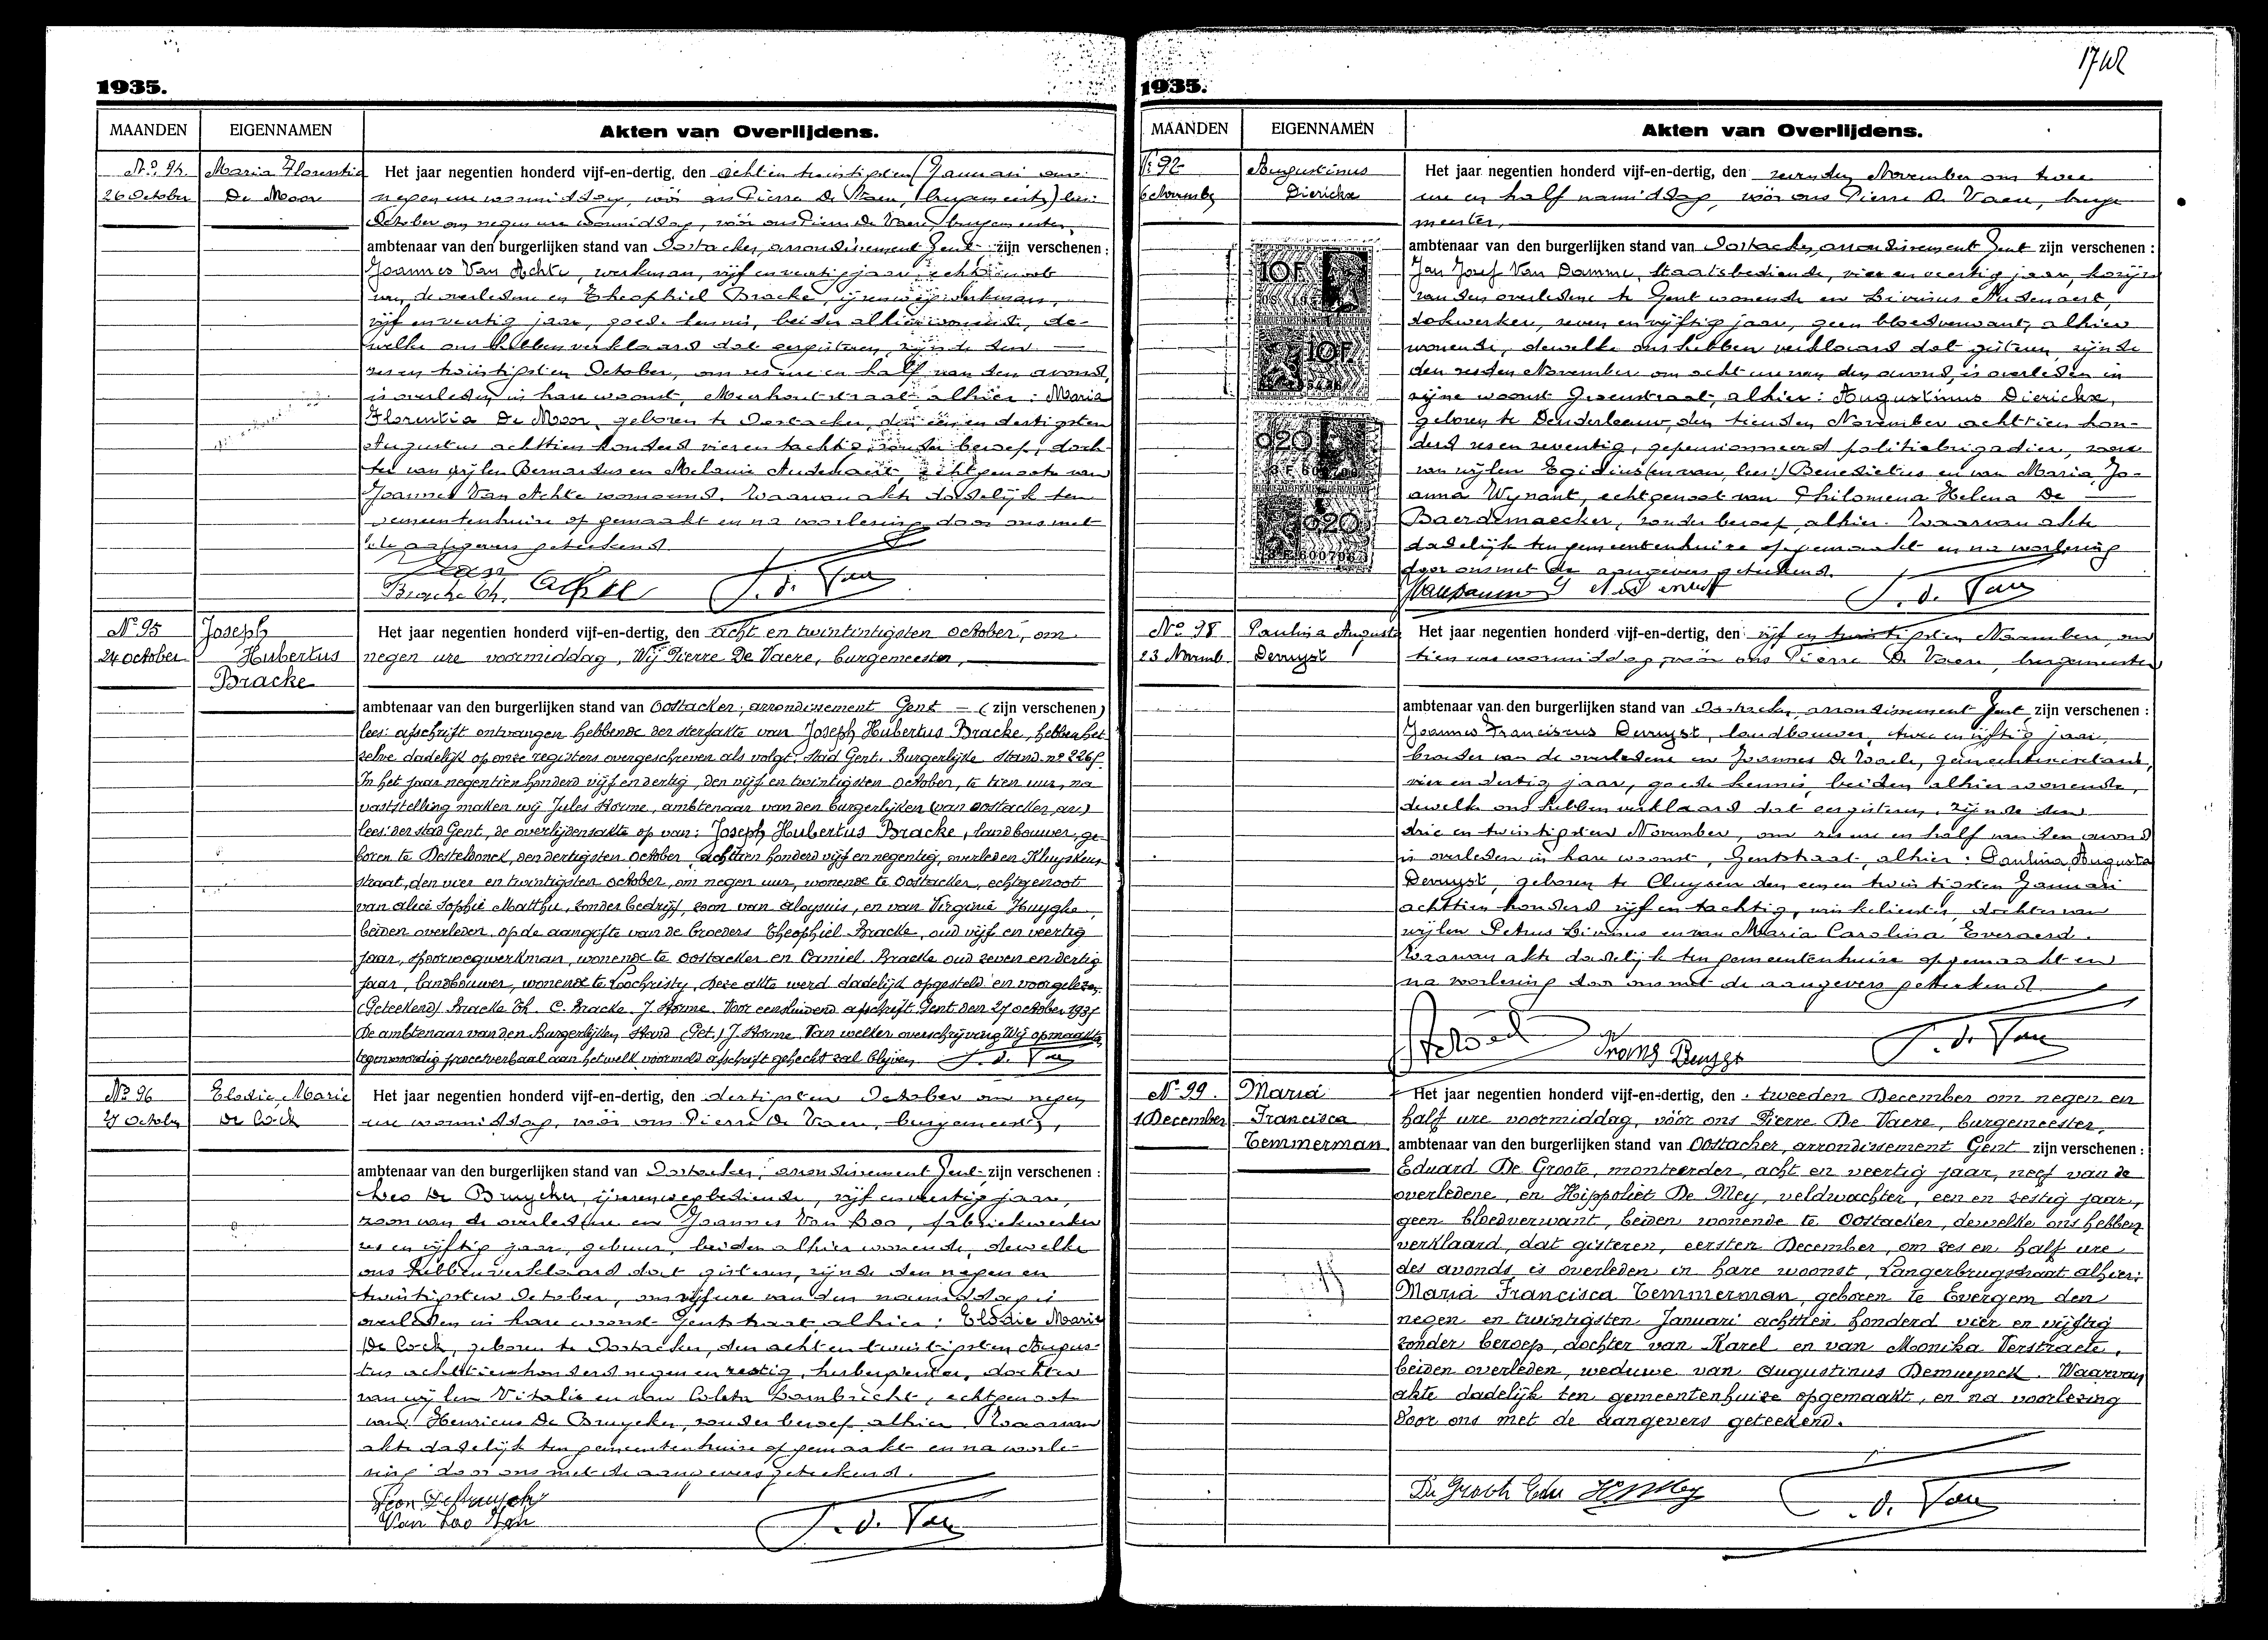 1935.
MAANDEN
EIGENNAMEN
Akten van Overlijdens.
No. 94
26 October
Maria Florentia
De Moor
Het jaar negentien honderd vijf-en-dertig, den acht en twintigsten (Januari om
negen ure voormiddag, vóór ons Pierre De Vaere, burgemeester) lees:
October om negen ure voormiddag, vóór ons Pierre De Vaere, burgemeester,
ambtenaar van den burgerlijken stand van Oostacker, arrondissement Gent zijn verschenen :
Joannes Van Achte, werkman, vijf en veertig jaar, echtgenoot
van de overledene en Theophiel Bracke, ijzerwegwerkman,
vijf en veertig jaar, goede kennis, beiden alhier wonende, de-
welke ons hebben verklaard dat eergisteren, zijnde den
zes en twintigsten October, om zes ure en half van den avond,
is overleden in hare woonst, Meerhoutstraat alhier : Maria
Florentia De Moor, geboren te Oostacker, den een en dertigsten
Augustus achttien honderd vier en tachtig, zonder beroep, doch-
ter van wijlen Bernardus en Melanie Audenaert, echtgenoote van
Joannes Van Achte voornoemd. Waarvan akte dadelijk ten
gemeentenhuize opgemaakt en na voorlezing door ons met
de aangevers geteekend.
Van Achte
Bracke Th.
P. d. Vaere
No 95
24 October
Joseph
Hubertus
Bracke
Het jaar negentien honderd vijf-en-dertig, den acht en twintintigsten october, om
negen ure voormiddag, Wij Pierre De Vaere, burgemeester,
ambtenaar van den burgerlijken stand van Oostacker, arrondissement Gent – (zijn verschenen)
lees: afschrift ontvangen hebbende der sterfakte van Joseph Hubertus Bracke, hebben het-
zelve dadelijk op onze registers overgeschreven als volgt: Stad Gent. Burgerlijke Stand. no 2265.
In het jaar negentien honderd vijf en dertig, den vijf en twintigsten October, te tien uur, na
vaststelling maken wij Jules Storme, ambtenaar van den burgerlijken (van Oostacker, arr.)
lees: der stad Gent, de overlijdensakte op van: Joseph Hubertus Bracke, landbouwer, ge-
boren te Desteldonck, den dertigsten October achttien honderd vijf en negentig, overleden Kluyskens
straat, den vier en twintigsten october, om negen uur, wonende te Oostacker, echtgenoot
van Alice Sophie Matthu, zonder bedrijf, zoon van Aloysius, en van Virginie Huyghe,
beiden overleden, op de aangifte van de broeders Theophiel Bracke, oud vijf en veertig
jaar, spoorwegwerkman, wonende te Oostacker en Camiel Bracke oud zeven en dertig
jaar, landbouwer, wonende te Loochristy, Deze akte werd dadelijk opgesteld en voorgelezen.
(Geteekend) Bracke Th. C. Bracke. J. Storme. Voor eensluidend afschrift. Gent den 27 october 1935
De ambtenaar van den Burgerlijken Stand (Get.) J. Storme. Van welker overschrijving Wij opmaakten
tegenwoordig procesverbaal aan hetwelk voormeld afschrift gehecht zal blijven. P. d. Vaere
No 96
27 October
Elodie Marie
De Cock
Het jaar negentien honderd vijf-en-dertig, den dertigsten October om negen
ure voormiddag, vóór ons Pierre De Vaere, burgemeester,
ambtenaar van den burgerlijken stand van Oostacker, arrondissement Gent zijn verschenen :
Leo De Bruycker, ijzerenwegbediende, vijf en veertig jaar,
zoon van de overledene en Joannes Van Loo, fabriekwerker
zes en vijftig jaar, gebuur, beiden alhier wonende, dewelke
ons hebben verklaard dat gisteren, zijnde den negen en
twintigsten October, om vijf ure van den namiddag is
overleden in hare woonst Gentstraat alhier : Elodie Marie
De Cock, geboren te Oostacker, den acht en twintigsten Augus-
tus achttien honderd negen en zestig, herbergierster, dochter
van wijlen Vitalis en van Coleta Lambrecht, echtgenoote
van Henricus De Bruycker, zonder beroep alhier. Waarvan
akte dadelijk ten gemeentenhuize opgemaakt en na voorle-
zing door ons met de aangevers geteekend.
Leon De Bruycker
Van Loo Jan
P. d. Vaere
1935.
MAANDEN
EIGENNAMEN
Akten van Overlijdens.
6 Novemb
Augustinus
Dierickx
Het jaar negentien honderd vijf-en-dertig, den zevenden November om twee
ure en half namiddag, vóór ons Pierre De Vaere, burge
meester,
ambtenaar van den burgerlijken stand van Oostacker, arrondissement Gent zijn verschenen :
Jan Jozef Van Damme, Staatsbediende, vier en veertig jaar, kozijn
van den overledene te Gent wonende en Livinus Audenaert,
dokwerker, zeven en vijftig jaar, geen bloedverwant, alhier
wonende, dewelke ons hebben verklaard dat gisteren, zijnde
den zesden November om acht ure van den avond, is overleden in
zijne woonst Gezenstraat, alhier : Augustinus Dierickx,
geboren te Denderleeuw, den tienden November achttien hon-
derd zes en zeventig, gepensionneerd politiebrigadier, zoon
van wijlen Egidius (en van, lees:) Benedictus en van Maria Jo-
anna Wynant, echtgenoot van Philomena Helena De
Baerdemaecker, zonder beroep, alhier. Waarvan akte
dadelijk ten gemeentenhuize opgemaakt en na voorlezing
door ons met de aangevers geteekend.
10F
10F
020
020
Vandamme J
P. d. Vaere
No 98
23 Novemb.
Paulina Augusta
Deruyst
Het jaar negentien honderd vijf-en-dertig, den vijf en twintigsten November, om
tien ure voormiddag, vóór ons Pierre De Vaere, burgemeester
ambtenaar van den burgerlijken stand van Oostacker, arrondissement Gent zijn verschenen :
Joannes Franciscus Deruyst, landbouwer, twee en vijftig jaar,
broeder van de overledene en Joannes De Waele, gemeentesecretaris,
vier en dertig jaar, goede kennis, beiden alhier wonende,
dewelke ons hebben verklaard dat eergisteren, zijnde den
drie en twintigsten November, om zes ure en half van den avond
is overleden in hare woonst, Gentstraat, alhier : Paulina Augusta
Deruyst, geboren te Cluysen den een en twintigsten Januari
achttien honderd vijf en tachtig, winkelierster, dochter van
wijlen Petrus Livinus en van Maria Carolina Everaerd.
Waarvan akte dadelijk ten gemeentenhuize opgemaakt en
na voorlezing door ons met de aangevers geteekend.
Frans Deruyst
P. d. Vaere
No 99.
1 December
Maria
Francisca
Temmerman
Het jaar negentien honderd vijf-en-dertig, den tweeden December om negen en
half ure voormiddag, vóór ons Pierre De Vaere, burgemeester,
ambtenaar van den burgerlijken stand van Oostacker, arrondissement Gent zijn verschenen :
Eduard De Groote, monteerder, acht en veertig jaar, neef van de
overledene, en Hippoliet De Mey, veldwachter, een en zestig jaar,
geen bloedverwant, beiden wonende te Oostacker, dewelke ons hebben
verklaard, dat gisteren, eersten December, om zes en half ure
des avonds, is overleden in hare woonst, Langerbrugstraat alhier:
Maria Francisca Temmerman, geboren te Evergem den
negen en twintigsten Januari achttien honderd vier en vijftig
zonder beroep, dochter van Karel en van Moonika Verstraete,
beiden overleden, weduwe van Augustinus Demuynck. Waarvan
akte dadelijk ten gemeentenhuize opgemaakt, en na voorlezing
door ons met de aangevers geteekend.
De Groote Edu H. De Mey
P. d. Vaere